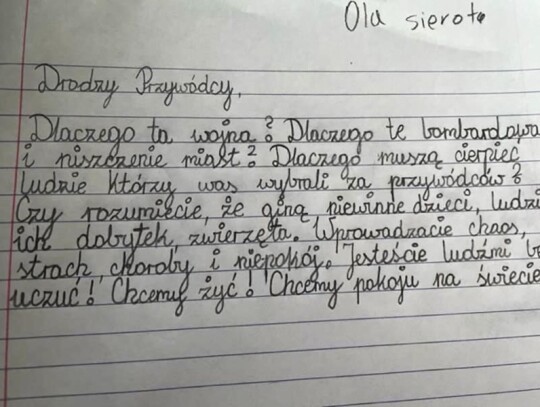 Ola sierota
Drodzy Przywódcy,
Dlaczego ta wojna? Dlaczego te bombardowa
i niszczenie miast? Dlaczego muszą cierpieć
ludzie którzy was wybrali za przywódców?
Czy rozumiecie, że giną niewinne dzieci, ludzi
ich dobytek, zwierzęta. Wprowadzacie chaos,
strach, choroby i niepokój. Jesteście ludźmi b
uczuć! Chcemy żyć! Chcemy pokoju na świecie